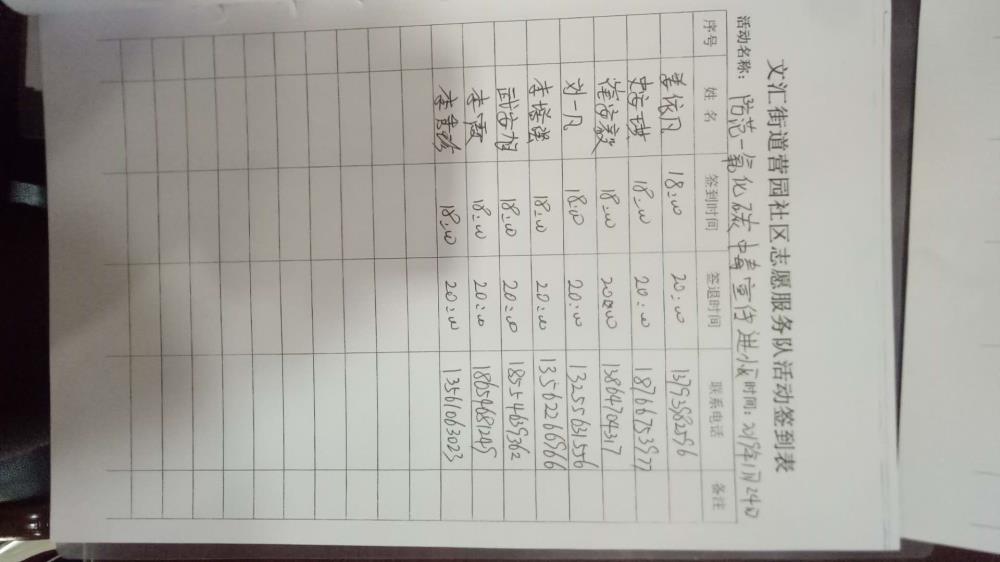 文汇街道营园社区志愿服务队活动签到表
活动名称：防范一氧化碳中毒宣传进小区 时间：2019年1月24日
序号 姓名 签到时间 签退时间 联系电话 备注
姜依凡 18:00 20:00 13793982596
史安琪 18:00 20:00 18766753977
18:00 20:00 13864704317
刘一凡 18:00 20:00 13255631556
李增强 18:00 20:00 13562266966
武海旭 18:00 20:00 18554639362
李霞 18:00 20:00 18654681249
18:00 20:00 13561063023